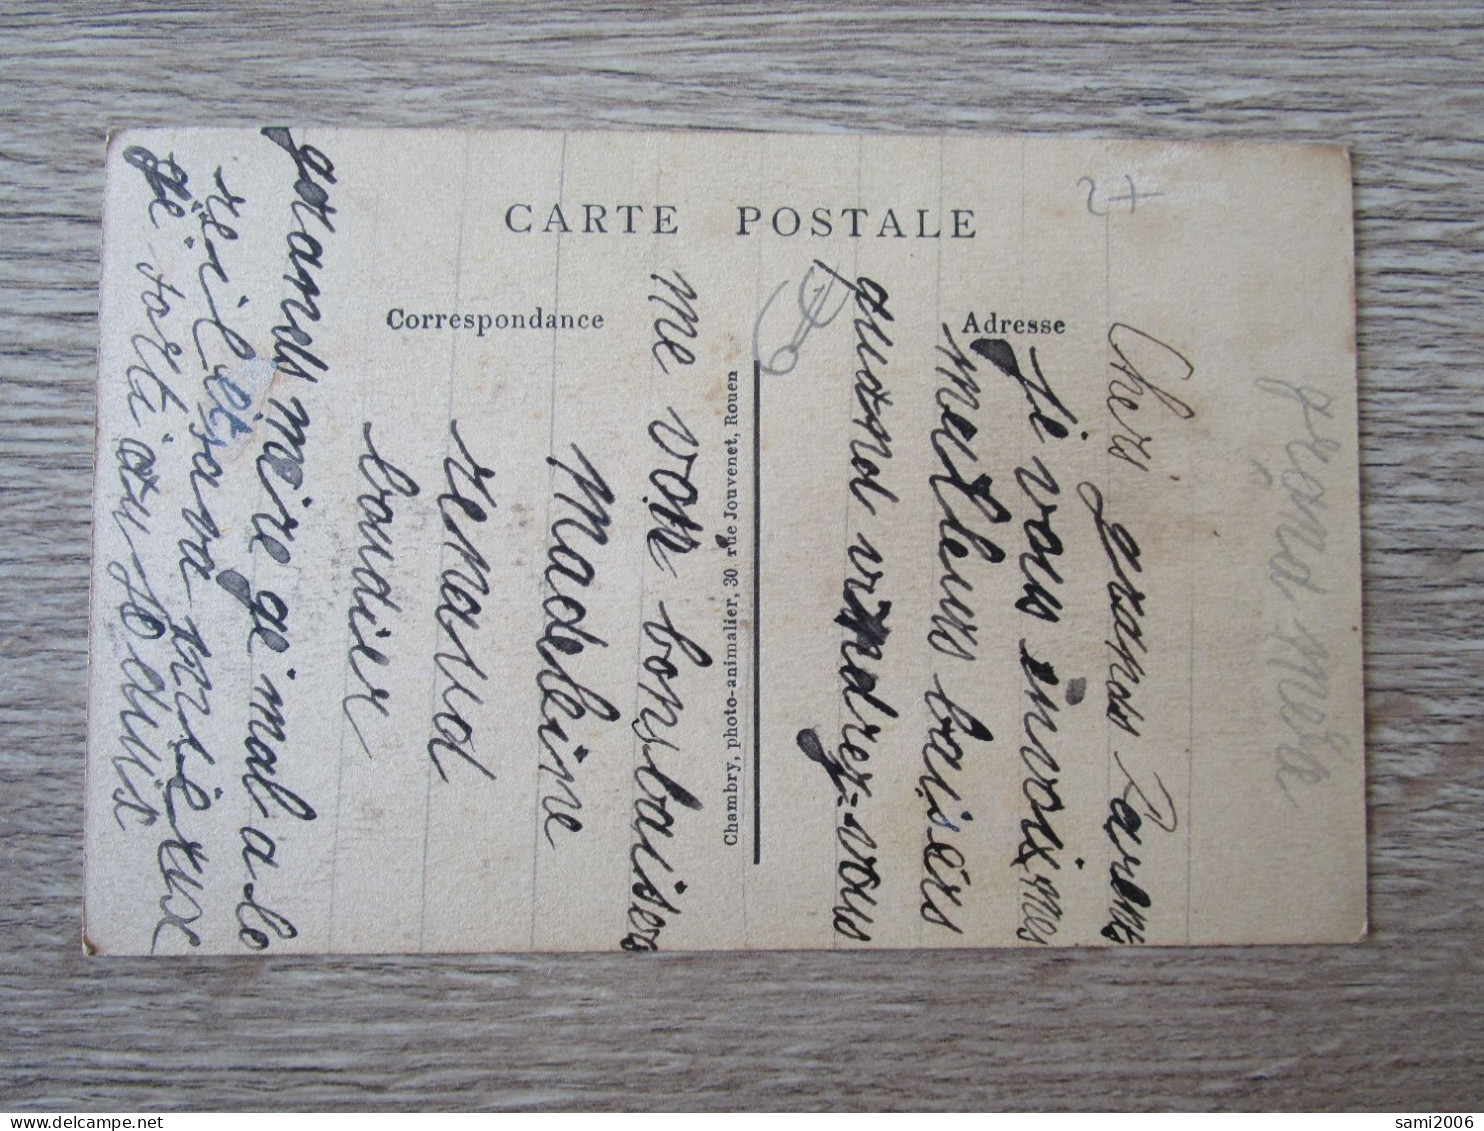 CARTE POSTALE
Correspondance
Adresse
Chambry, photo-animalier, 30 rue Jouvenet, Rouen
grand mère
Chers grands Parents
je vous invoix mes
meilleurs baisers
quand viendrez-vous
me voir bons baisers
Madeleine
renaud
boudier
grands meire ge mal a le
reil et sava mieux
ge sorti
sami2006